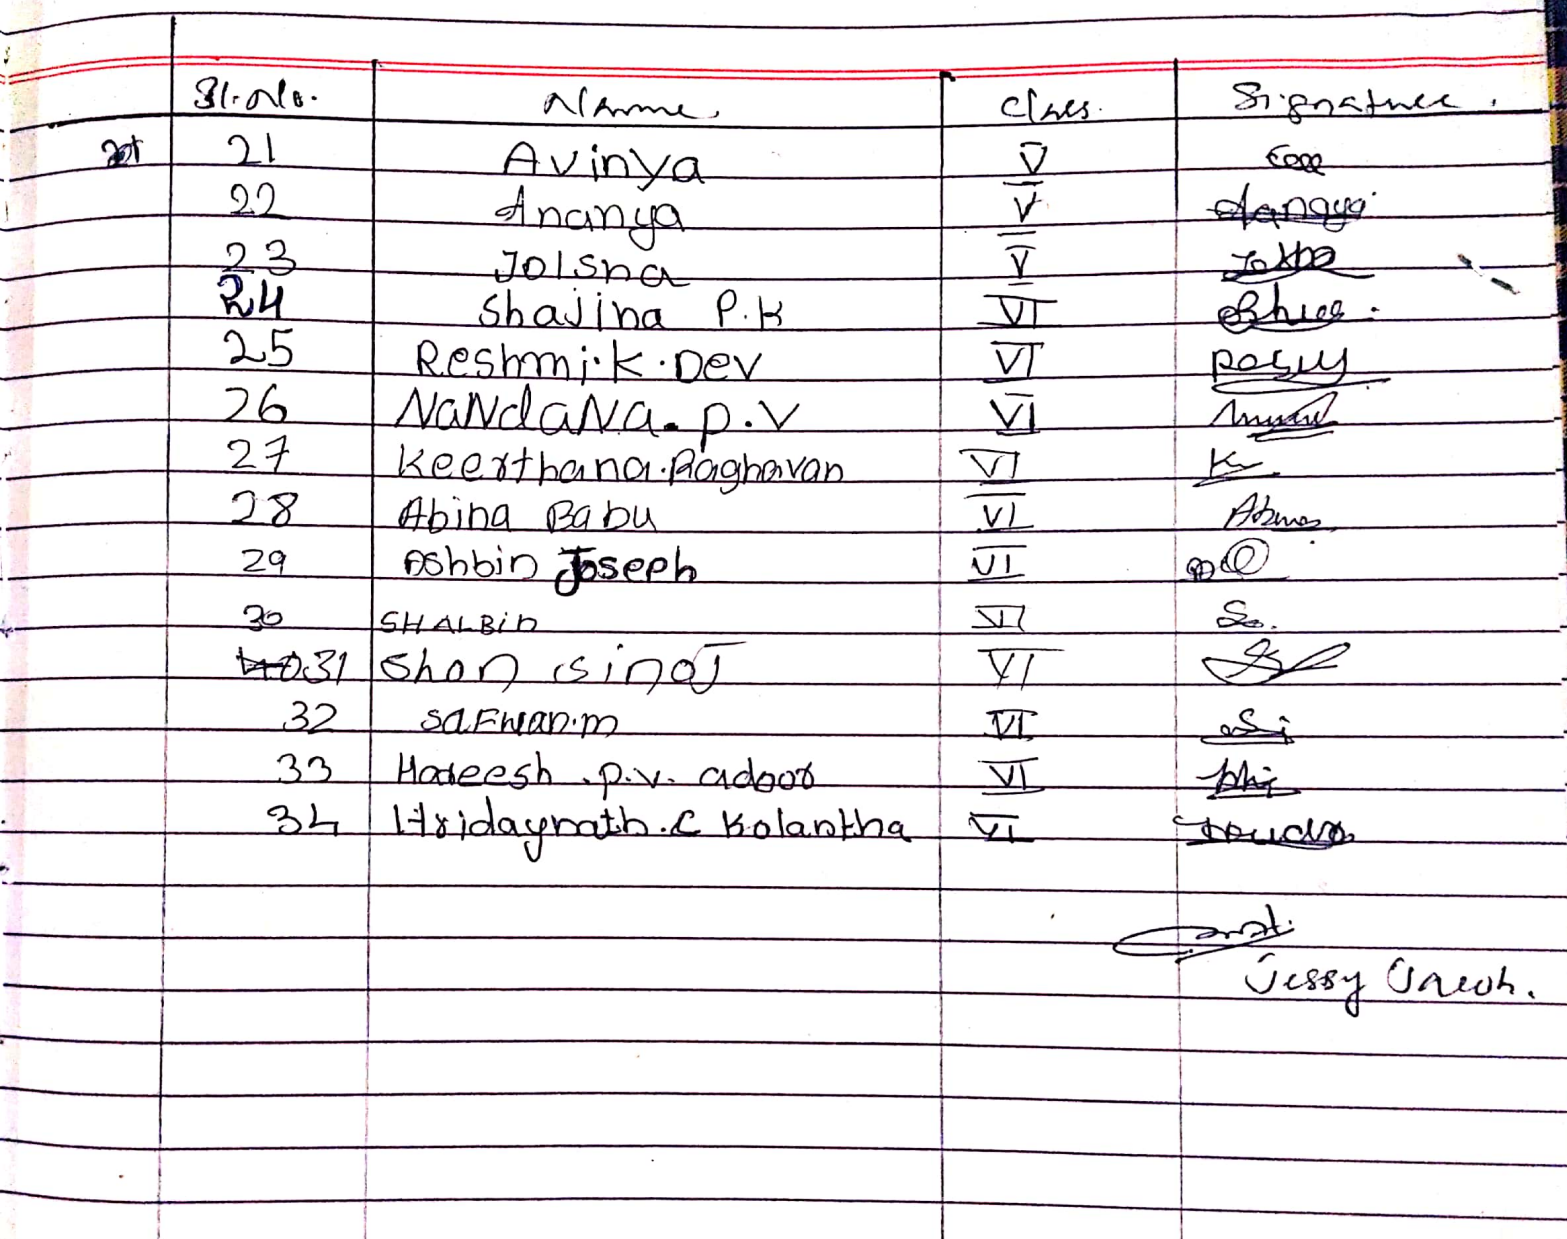 Sl. No. Name Class. Signature.
21 Avinya V
22 Ananya V
23 Jolsna V
24 Shajina P.K VI
25 Reshmi.K.Dev VI
26 NaNdaNa.p.v VI
27 Keerthana.Raghavan VI K
28 Abina Babu VI
29 Ashbin Joseph VI
30 SHALBin VI
31 Shon sinoJ VI
32 saFwan.m VI
33 Hareesh.p.v. adoor VI
34 Hridaynath.C Kolantha VI
Jessy